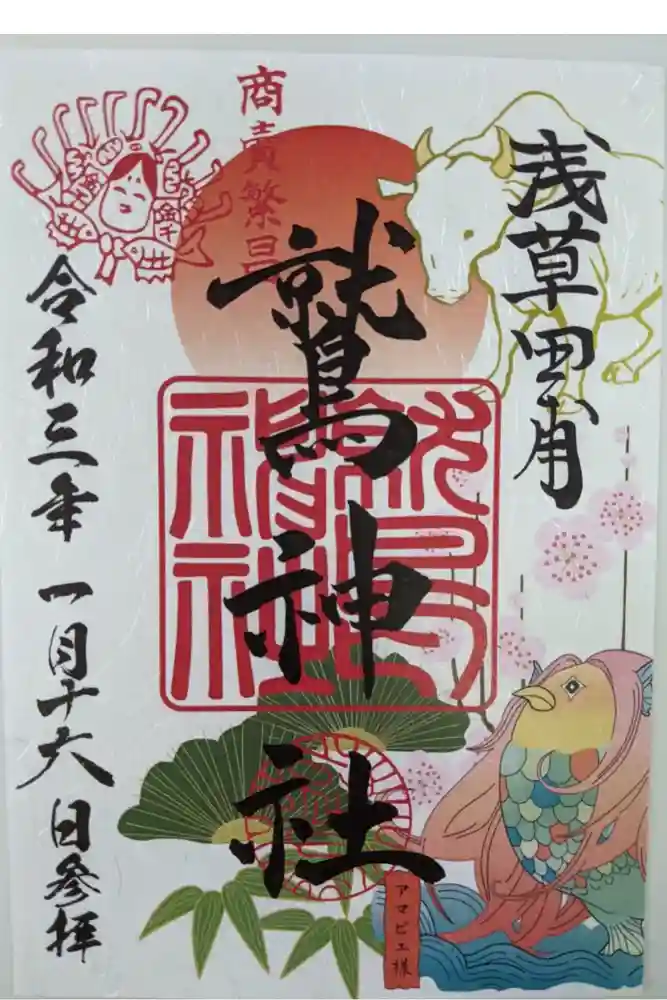 浅草田甫
商賣繁昌
鷲神社
鷲神社
令和三年 一月十六日参拝
アマビエ様